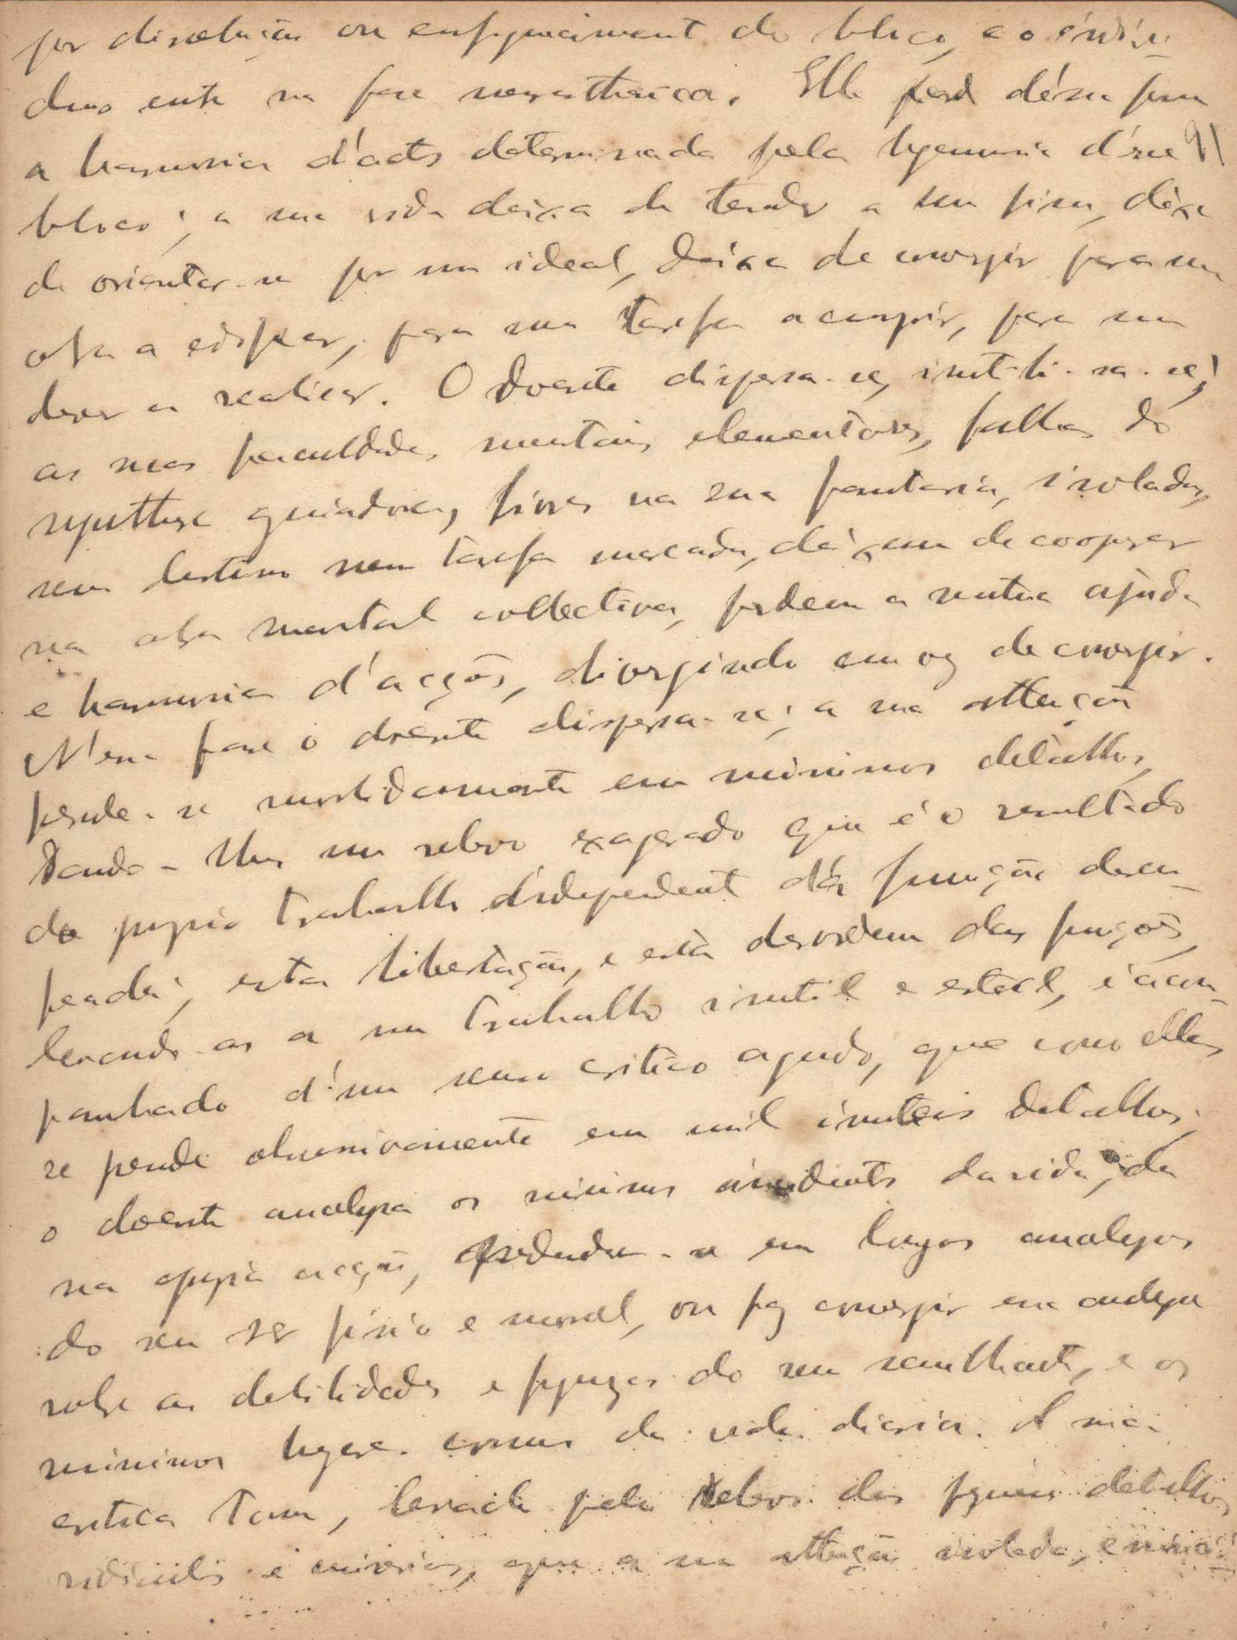 por dissolução ou enfraquecimento do bloco, e o indivi-
duo entra na fase neurasthenica. Elle perde dessa forma
a harmonia d'actos determinada pela hegemonia d'esse
91
bloco; a sua vida deixa de tender a um fim, deixa
de orientar-se por um ideal, deixa de convergir para uma
obra a edificar, para uma tarefa a cumprir, para um
dever a realisar. O doente dispersa-se, inutilisa-se;
as suas faculdades mentais elementares, faltas do
guiadora, livres na sua fantasia, isoladas,
sem destino nem tarefa marcada, deixam de cooperar
na obra mental collectiva, perdem a mutua ajuda
e harmonia d'acções, divergindo em vez de convergir.
N'essa fase o doente dispersa-se; a sua attenção
perde-se morbidamente em minimos detalhes,
dando-lhes um relevo exagerado que é o resultado
do proprio trabalho independente da função desem-
penhada; esta libertação, e esta desordem das funções,
levando-as a um trabalho inutil e esteril, é acom-
panhado d'um senso critico agudo, que como ellas
se perde obsessivamente em mil inuteis detalhes;
o doente analysa os minimos incidentes da vida, da
sua propria acção, em longas analyses
do seu ser fisico e moral, ou faz convergir em analyse
sobre as debilidades e do seu semelhante, e os
minimos da vida diaria. A sua
critica tem, levada pelo relevo dos detalhes
ridiculos e, que a sua attenção isolada,